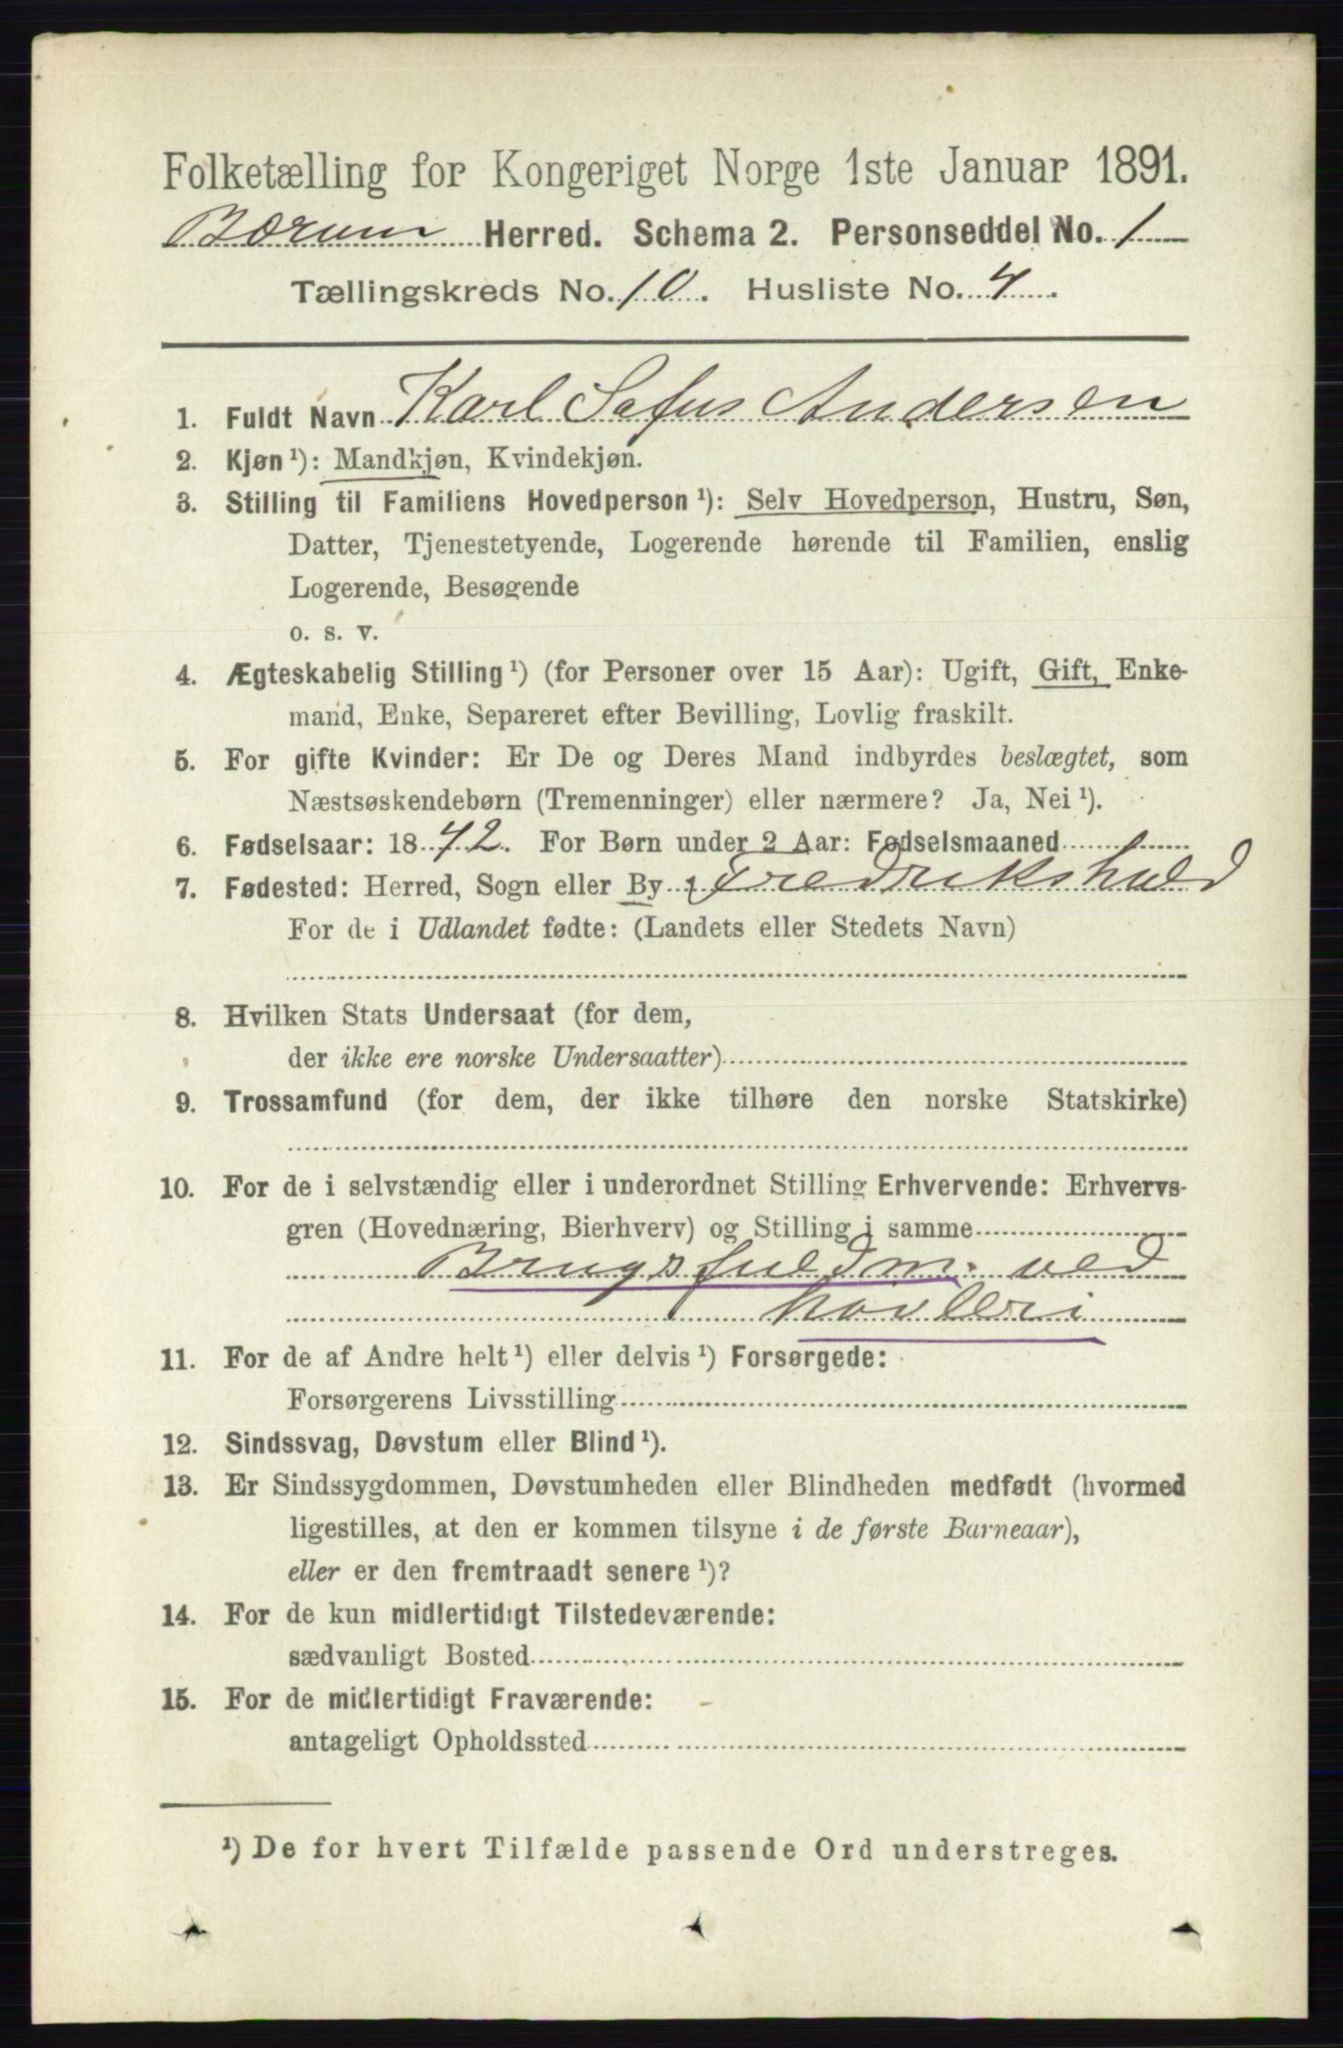 Folketælling for Kongeriget Norge 1ste Januar 1891.
Bærum Herred. Schema 2. Personseddel No. 1
Tællingskreds No. 10. Husliste No. 4.
1. Fuldt Navn Karl Sofus Andersen
2. Kjøn¹): Mandkjøn, Kvindekjøn.
3. Stilling til Familiens Hovedperson¹): Selv Hovedperson, Hustru, Søn,
Datter, Tjenestetyende, Logerende hørende til Familien, enslig
Logerende, Besøgende
o. s. v.
4. Ægteskabelig Stilling¹) (for Personer over 15 Aar): Ugift, Gift, Enke-
mand, Enke, Separeret efter Bevilling, Lovlig fraskilt.
5. For gifte Kvinder: Er De og Deres Mand indbyrdes beslægtet, som
Næstsøskendebørn (Tremenninger) eller nærmere? Ja, Nei¹).
6. Fødselsaar: 1842. For Børn under 2 Aar: Fødselsmaaned
7. Fødested: Herred, Sogn eller By Fredrikshald
For de i Udlandet fødte: (Landets eller Stedets Navn)
8. Hvilken Stats Undersaat (for dem,
der ikke ere norske Undersaatter)
9. Trossamfund (for dem, der ikke tilhøre den norske Statskirke)
10. For de i selvstændig eller i underordnet Stilling Erhvervende: Erhvervs-
gren (Hovednæring, Bierhverv) og Stilling i samme
Brugsfuldm. ved
høvleri
11. For de af Andre helt¹) eller delvis¹) Forsørgede:
Forsørgerens Livsstilling
12. Sindssvag, Døvstum eller Blind¹).
13. Er Sindssygdommen, Døvstumheden eller Blindheden medfødt (hvormed
ligestilles, at den er kommen tilsyne i de første Barneaar),
eller er den fremtraadt senere¹)?
14. For de kun midlertidigt Tilstedeværende:
sædvanligt Bosted
15. For de midlertidigt Fraværende:
antageligt Opholdssted
¹) De for hvert Tilfælde passende Ord understreges.